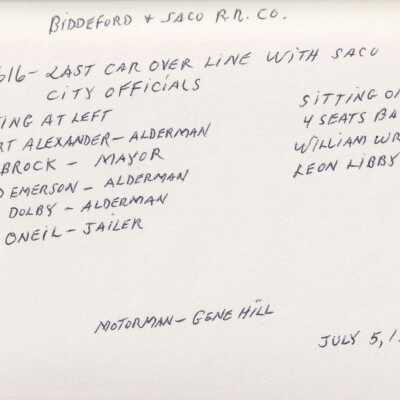 BIDDEFORD & SACO R.R. CO.
616- LAST CAR OVER LINE WITH SACO
CITY OFFICIALS
TING AT LEFT
RT ALEXANDER - ALDERMAN
BROCK - MAYOR
D EMERSON - ALDERMAN
DOLBY - ALDERMAN
ONEIL - JAILER
SITTING ON
4 SEATS BA
WILLIAM WR
LEON LIBBY
MOTORMAN - GENE HILL
JULY 5, 1